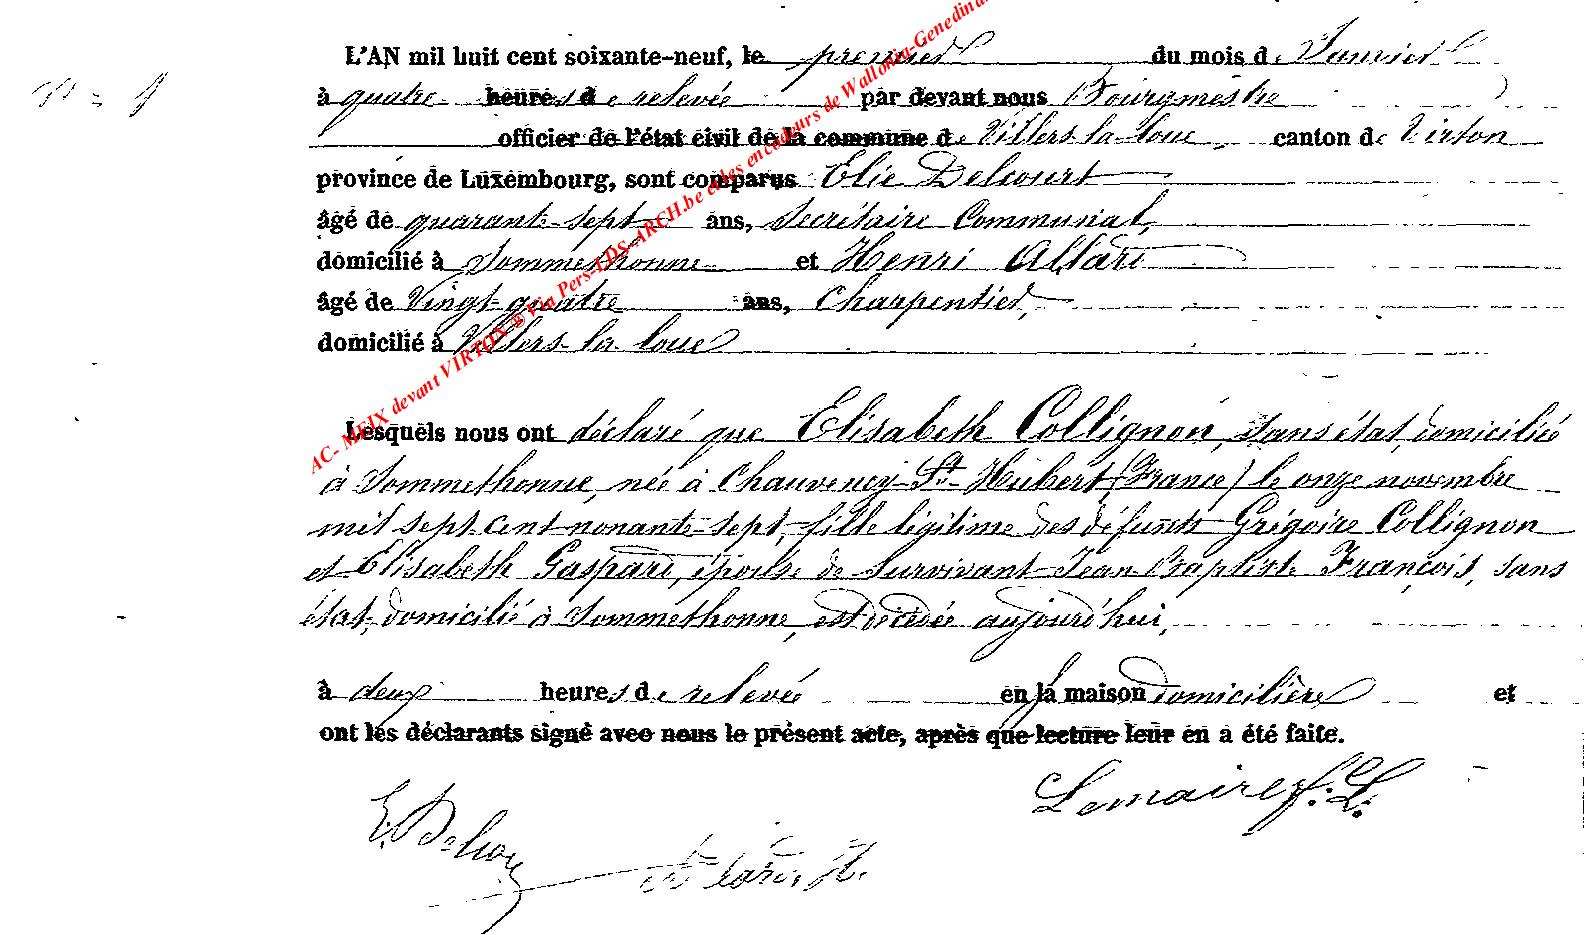 L'AN mil huit cent soixante-neuf, le premier du mois de Janvier
à quatre heures de relevée par devant nous Bourgmestre
officier de l'état civil de la commune de Villers-la-loue, canton de Virton
province de Luxembourg, sont comparus Elie Delcourt
âgé de quarant-sept ans, Secrétaire Communal,
domicilié à Sommethonne et Henri Allard
âgé de Vingt-quatre ans, Charpentier,
domicilié à Villers-la-loue
Lesquels nous ont déclaré que Elisabeth Collignon, sans état, domiciliée
à Sommethonne, née à Chauvency-St-Hubert (France) le onze novembre
mil sept cent nonante-sept, fille légitime des défunts Grégoire Collignon
et Elisabeth Gaspard, épouse de survivant Jean-Baptiste François, sans
état, domicilié à Sommethonne, est décédée aujourd'hui,
à deux heures de relevée en la maison domicilière et
ont les déclarants signé avec nous le présent acte, après que lecture leur en a été faite.
Lemaire J. L.
E. Delcour
AC- MEIX devant VIRTON & Via Pers-LDS-ARCH.be et les encodeurs de Wallonia-Genedinan